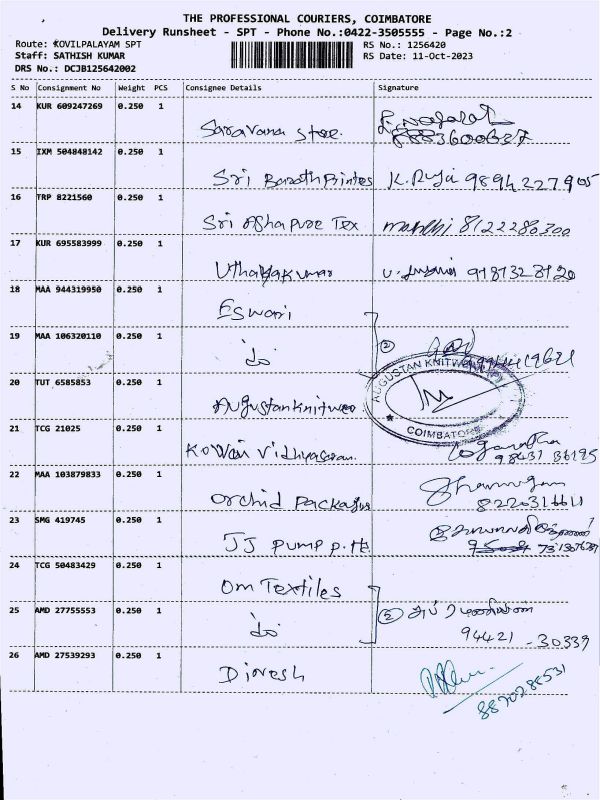 THE PROFESSIONAL COURIERS, COIMBATORE
Delivery Runsheet - SPT - Phone No.:0422-3505555 - Page No.:2
Route: KOVILPALAYAM SPT RS No.: 1256420
Staff: SATHISH KUMAR RS Date: 11-Oct-2023
DRS No.: DCJB125642002
S No Consignment No Weight PCS Consignee Details Signature
14 KUR 609247269 0.250 1
Saravana Store.
15 IXM 504848142 0.250 1
Sri Barath Printes K. Ruja 9894227905
16 TRP 8221560 0.250 1
Sri Ashapure Tex 8122280300
17 KUR 695583999 0.250 1
Uthayakumar
18 MAA 944319950 0.250 1
Eswari
19 MAA 106320110 0.250 1
do (2)
20 TUT 6585853 0.250 1
Augustan Knitwear
AUGUSTAN KNITWEAR
COIMBATORE
21 TCG 21025 0.250 1
Kovai Vidhyasram 98431 36195
22 MAA 103879833 0.250 1
Orchid Packagings 8220316611
23 SMG 419745 0.250 1
JJ Pump P. Ltd
24 TCG 50483429 0.250 1
Om Textiles
25 AMD 27755553 0.250 1
do (2)
94421 - 30339
26 AMD 27539293 0.250 1
Dinesh